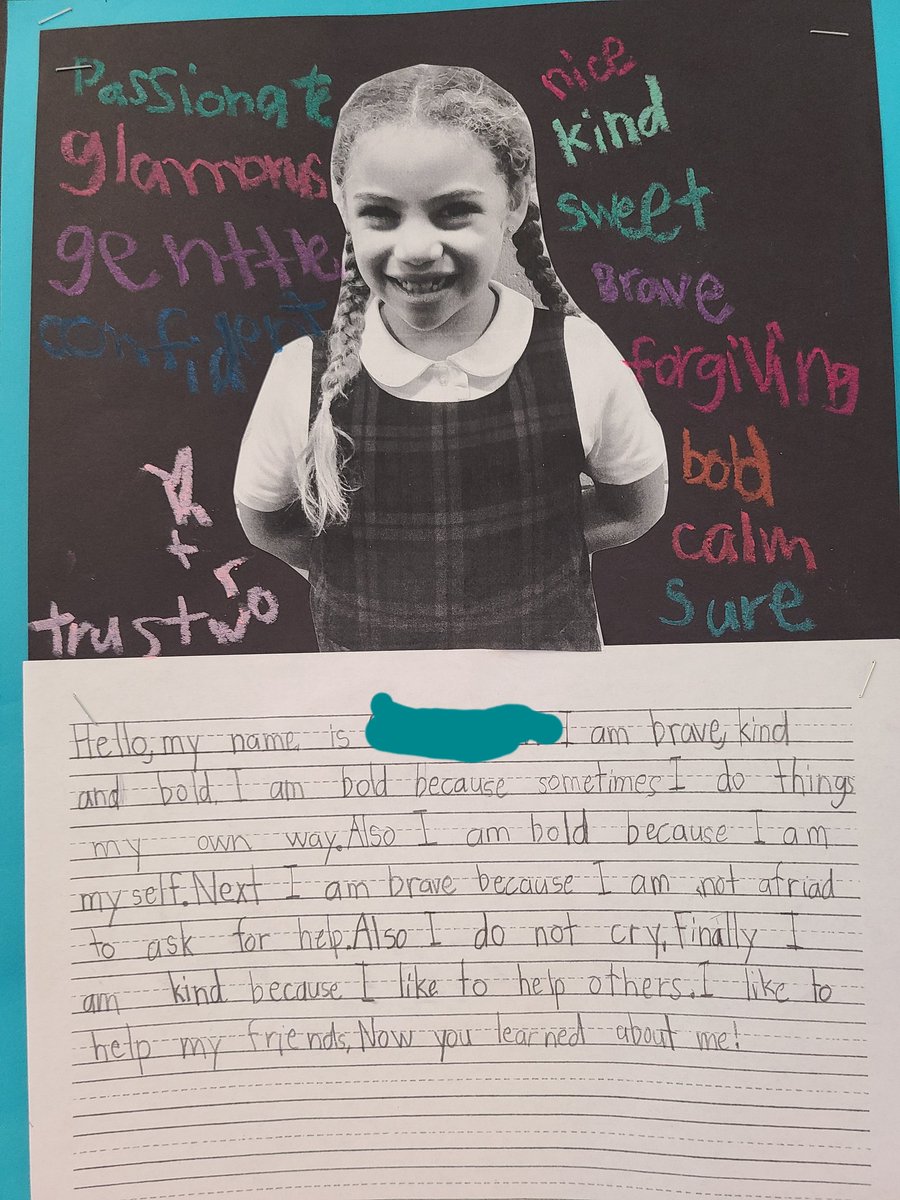 Passionate
glamorus
gentle
confident
trustwo
r
t
y
nice
kind
sweet
Brave
forgiving
bold
calm
sure
Hello, my name is I am brave, kind
and bold. I am bold because sometimes I do things
my own way. Also I am bold because I am
my self. Next I am brave because I am not afriad
to ask for help. Also I do not cry. Finally I
am kind because I like to help others. I like to
help my friends. Now you learned about me!